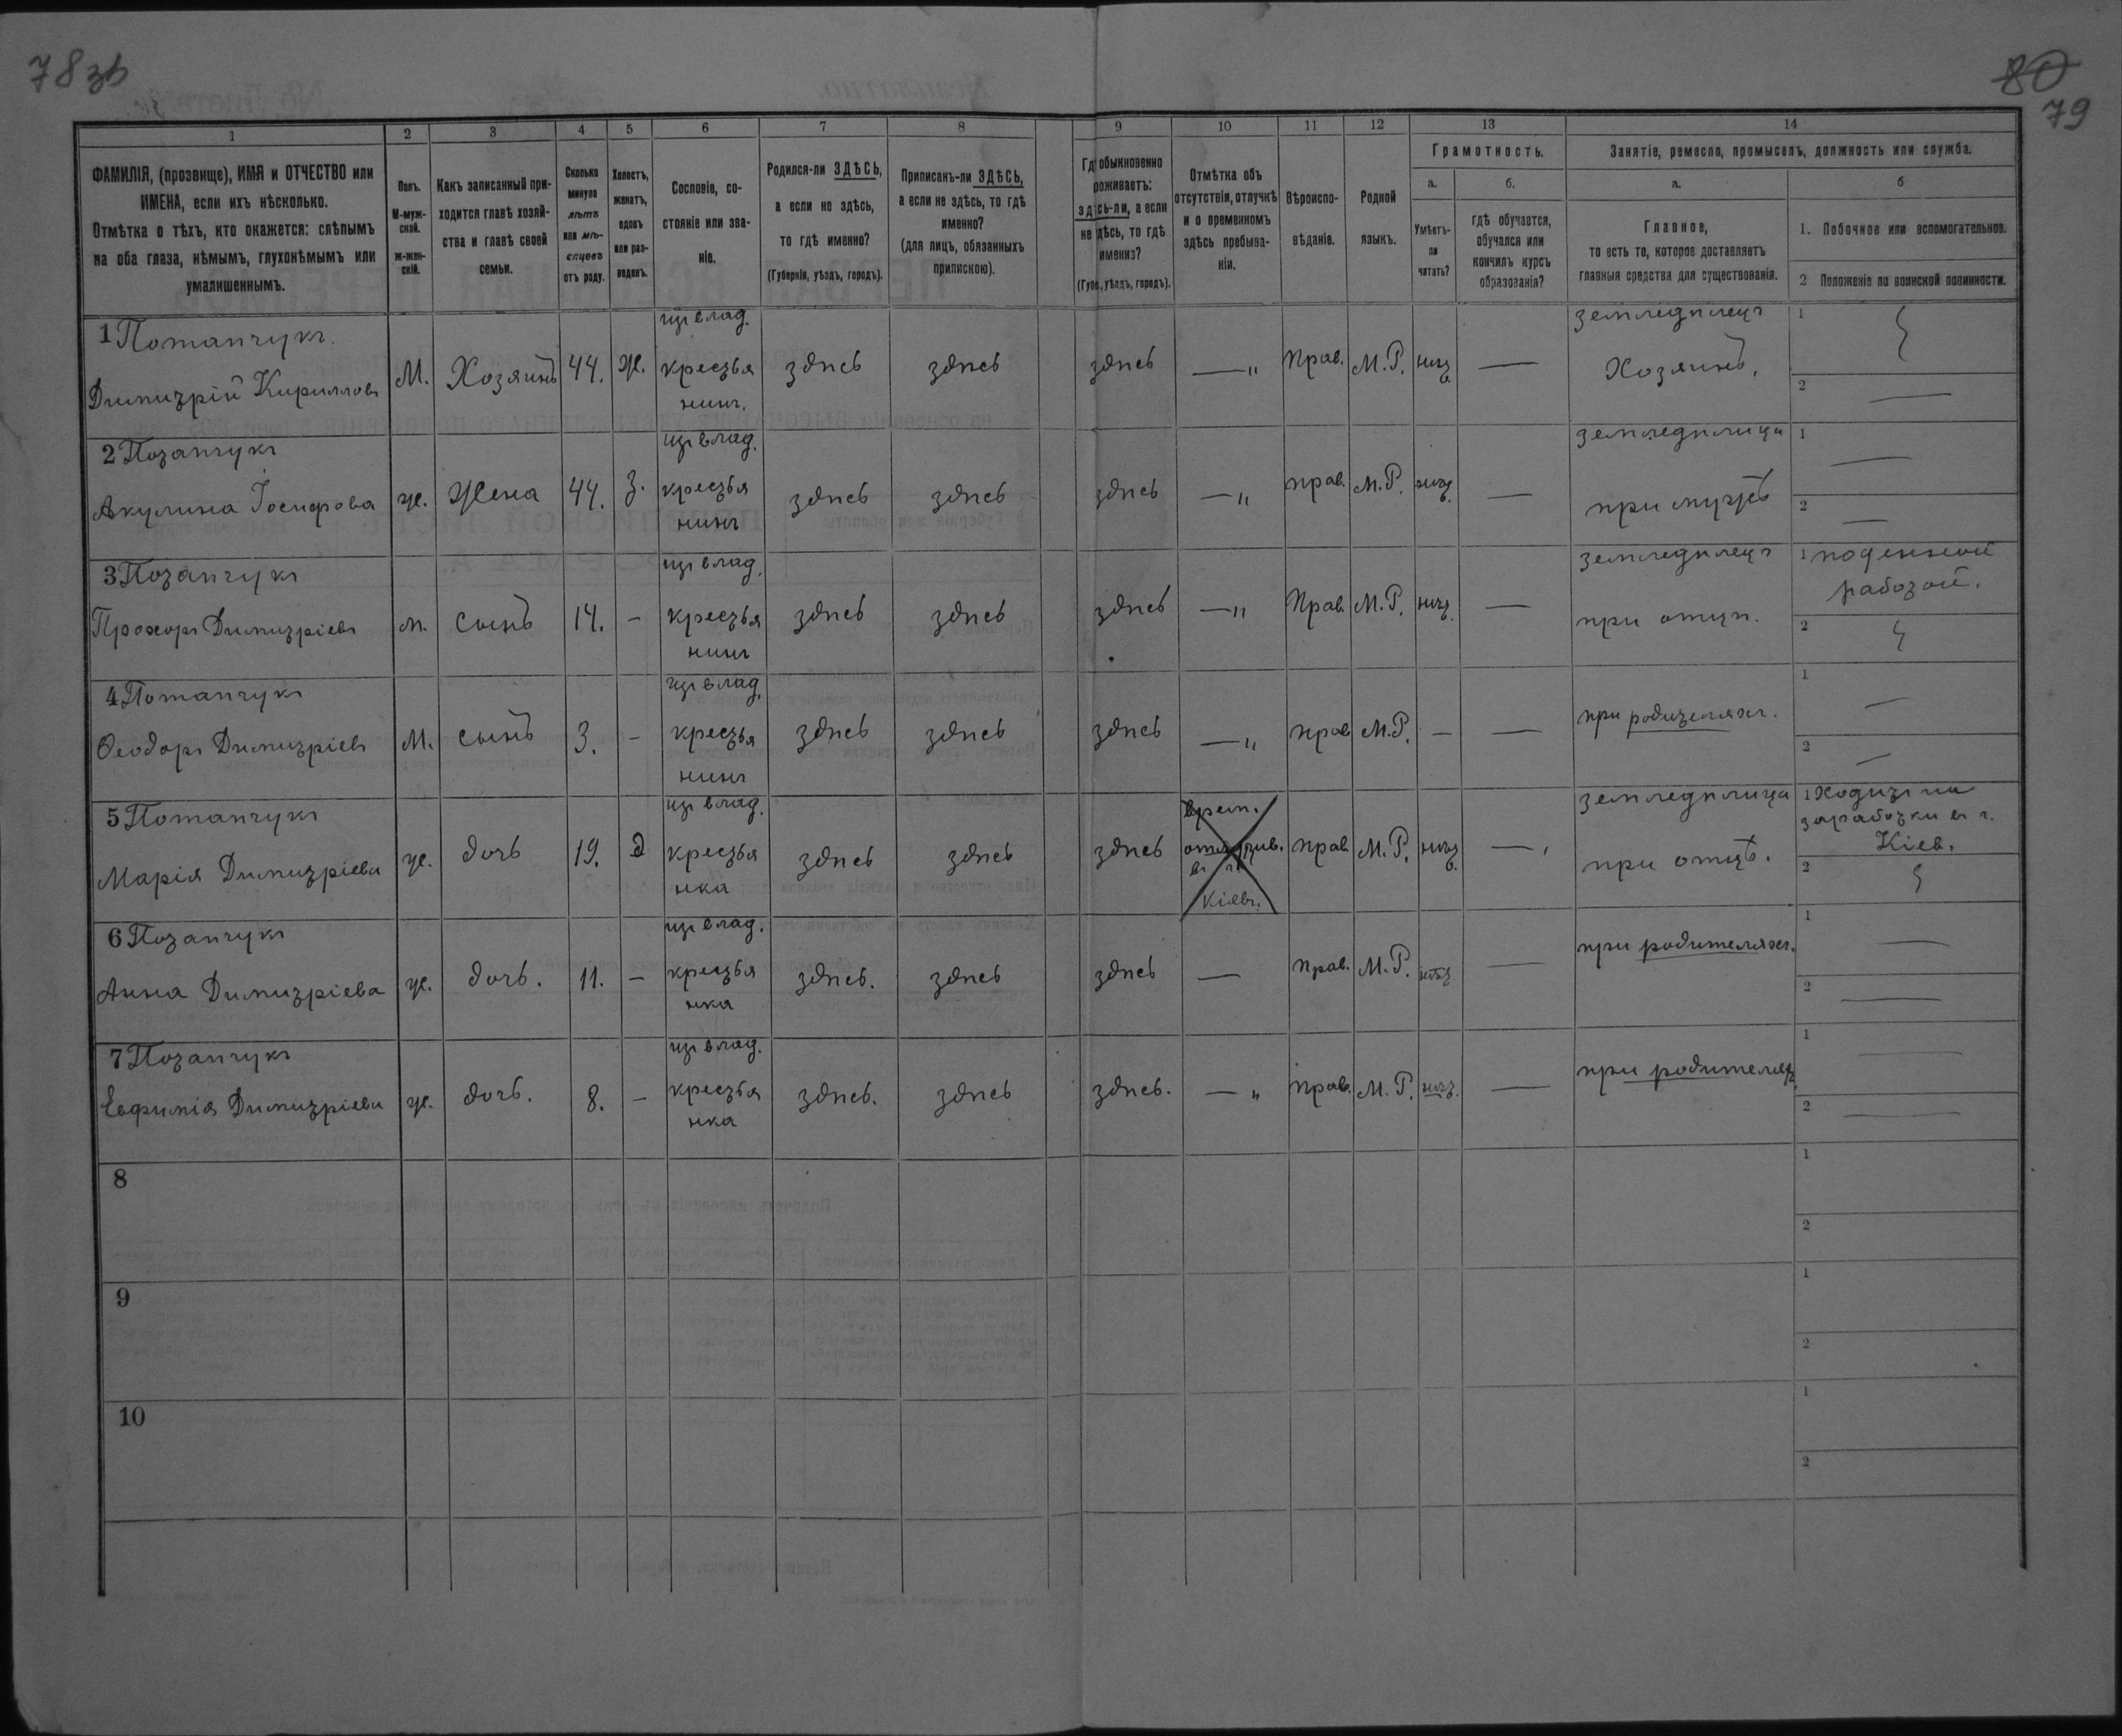 78 зв
80
79
1 2 3 4 5 6 7 8 9 10 11 12 13 14
ФАМИЛІЯ, (прозвище), ИМЯ и ОТЧЕСТВО или
ИМЕНА, если ихъ нѣсколько.
Отмѣтка о тѣхъ, кто окажется: слѣпымъ
на оба глаза, нѣмымъ, глухонѣмымъ или
умалишеннымъ.
Полъ.
М-муж-
ской.
ж-жен-
скій.
Какъ записанный при-
ходится главѣ хозяй-
ства и главѣ своей
семьи.
Сколько
минуло
лѣтъ
или мѣ-
сяцевъ
отъ роду.
Холостъ,
женатъ,
вдовъ
или раз-
веденъ.
Сословіе, со-
стояніе или зва-
ніе.
Родился-ли ЗДѢСЬ,
а если не здѣсь,
то гдѣ именно?
(Губернія, уѣздъ, городъ).
Приписанъ-ли ЗДѢСЬ,
а если не здѣсь, то гдѣ
именно?
(для лицъ, обязанныхъ
припискою).
Гдѣ обыкновенно
проживаетъ:
здѣсь-ли, а если
не здѣсь, то гдѣ
именно?
(Губ., уѣздъ, городъ).
Отмѣтка объ
отсутствіи, отлучкѣ
и о временномъ
здѣсь пребыва-
ніи.
Вѣроиспо-
вѣданіе.
Родной
языкъ.
Грамотность.
а. б.
Умѣетъ-
ли
читать?
гдѣ обучается,
обучался или
кончилъ курсъ
образованія?
Занятіе, ремесло, промыселъ, должность или служба.
а. б
Главное,
то есть то, которое доставляетъ
главныя средства для существованія.
1. Побочное или вспомогательное.
2 Положеніе по воинской повинности.
1 Потапчукъ
Димитрій Кирилловъ
М. Хозяинъ 44. ж.
изъ влад.
крестья
нинъ.
здѣсь здѣсь здѣсь — " Прав. М.Р. нѣтъ —
земледѣлецъ
Хозяинъ.
1
2 —
2 Потапчукъ
Акулина Іосифова
ж. Жена 44. З.
изъ влад.
крестья
нинъ
здѣсь здѣсь здѣсь — " прав. М.Р. нѣтъ. —
земледѣлица
при мужѣ
1 —
2 —
3 Потапчукъ
Прохоръ Димитріевъ
м. сынъ 14. -
изъ влад.
крестья
нинъ
здѣсь здѣсь здѣсь — " Прав. М.Р. нѣтъ. —
земледѣлецъ
при отцѣ.
1 поденной
работой.
2
4 Потапчукъ
Ѳеодоръ Димитріевъ
М. сынъ 3. -
изъ влад.
крестья
нинъ
здѣсь здѣсь здѣсь — " прав М.Р. — —
при родителяхъ.
1 —
2 —
5 Потапчукъ
Марія Димитріева
ж. дочь 19. д
изъ влад.
крестья
нка
здѣсь здѣсь здѣсь
врем.
въ г.
Кіевъ.
прав М.Р. нѣтъ. —
земледѣлица
при отцѣ.
1 Ходитъ на
заработки въ г.
Кіев.
2
6 Потапчукъ
Анна Димитріева
ж. дочь. 11. -
изъ влад.
крестья
нка
здѣсь. здѣсь здѣсь — прав. М.Р. нѣтъ —
при родителяхъ.
1 —
2 —
7 Потапчукъ
Евфимія Димитріева
ж. дочь. 8. -
изъ влад.
крестья
нка
здѣсь. здѣсь здѣсь. — " прав. М.Р. нѣтъ. —
при родителяхъ
1 —
2 —
8
1
2
9
1
2
10
1
2